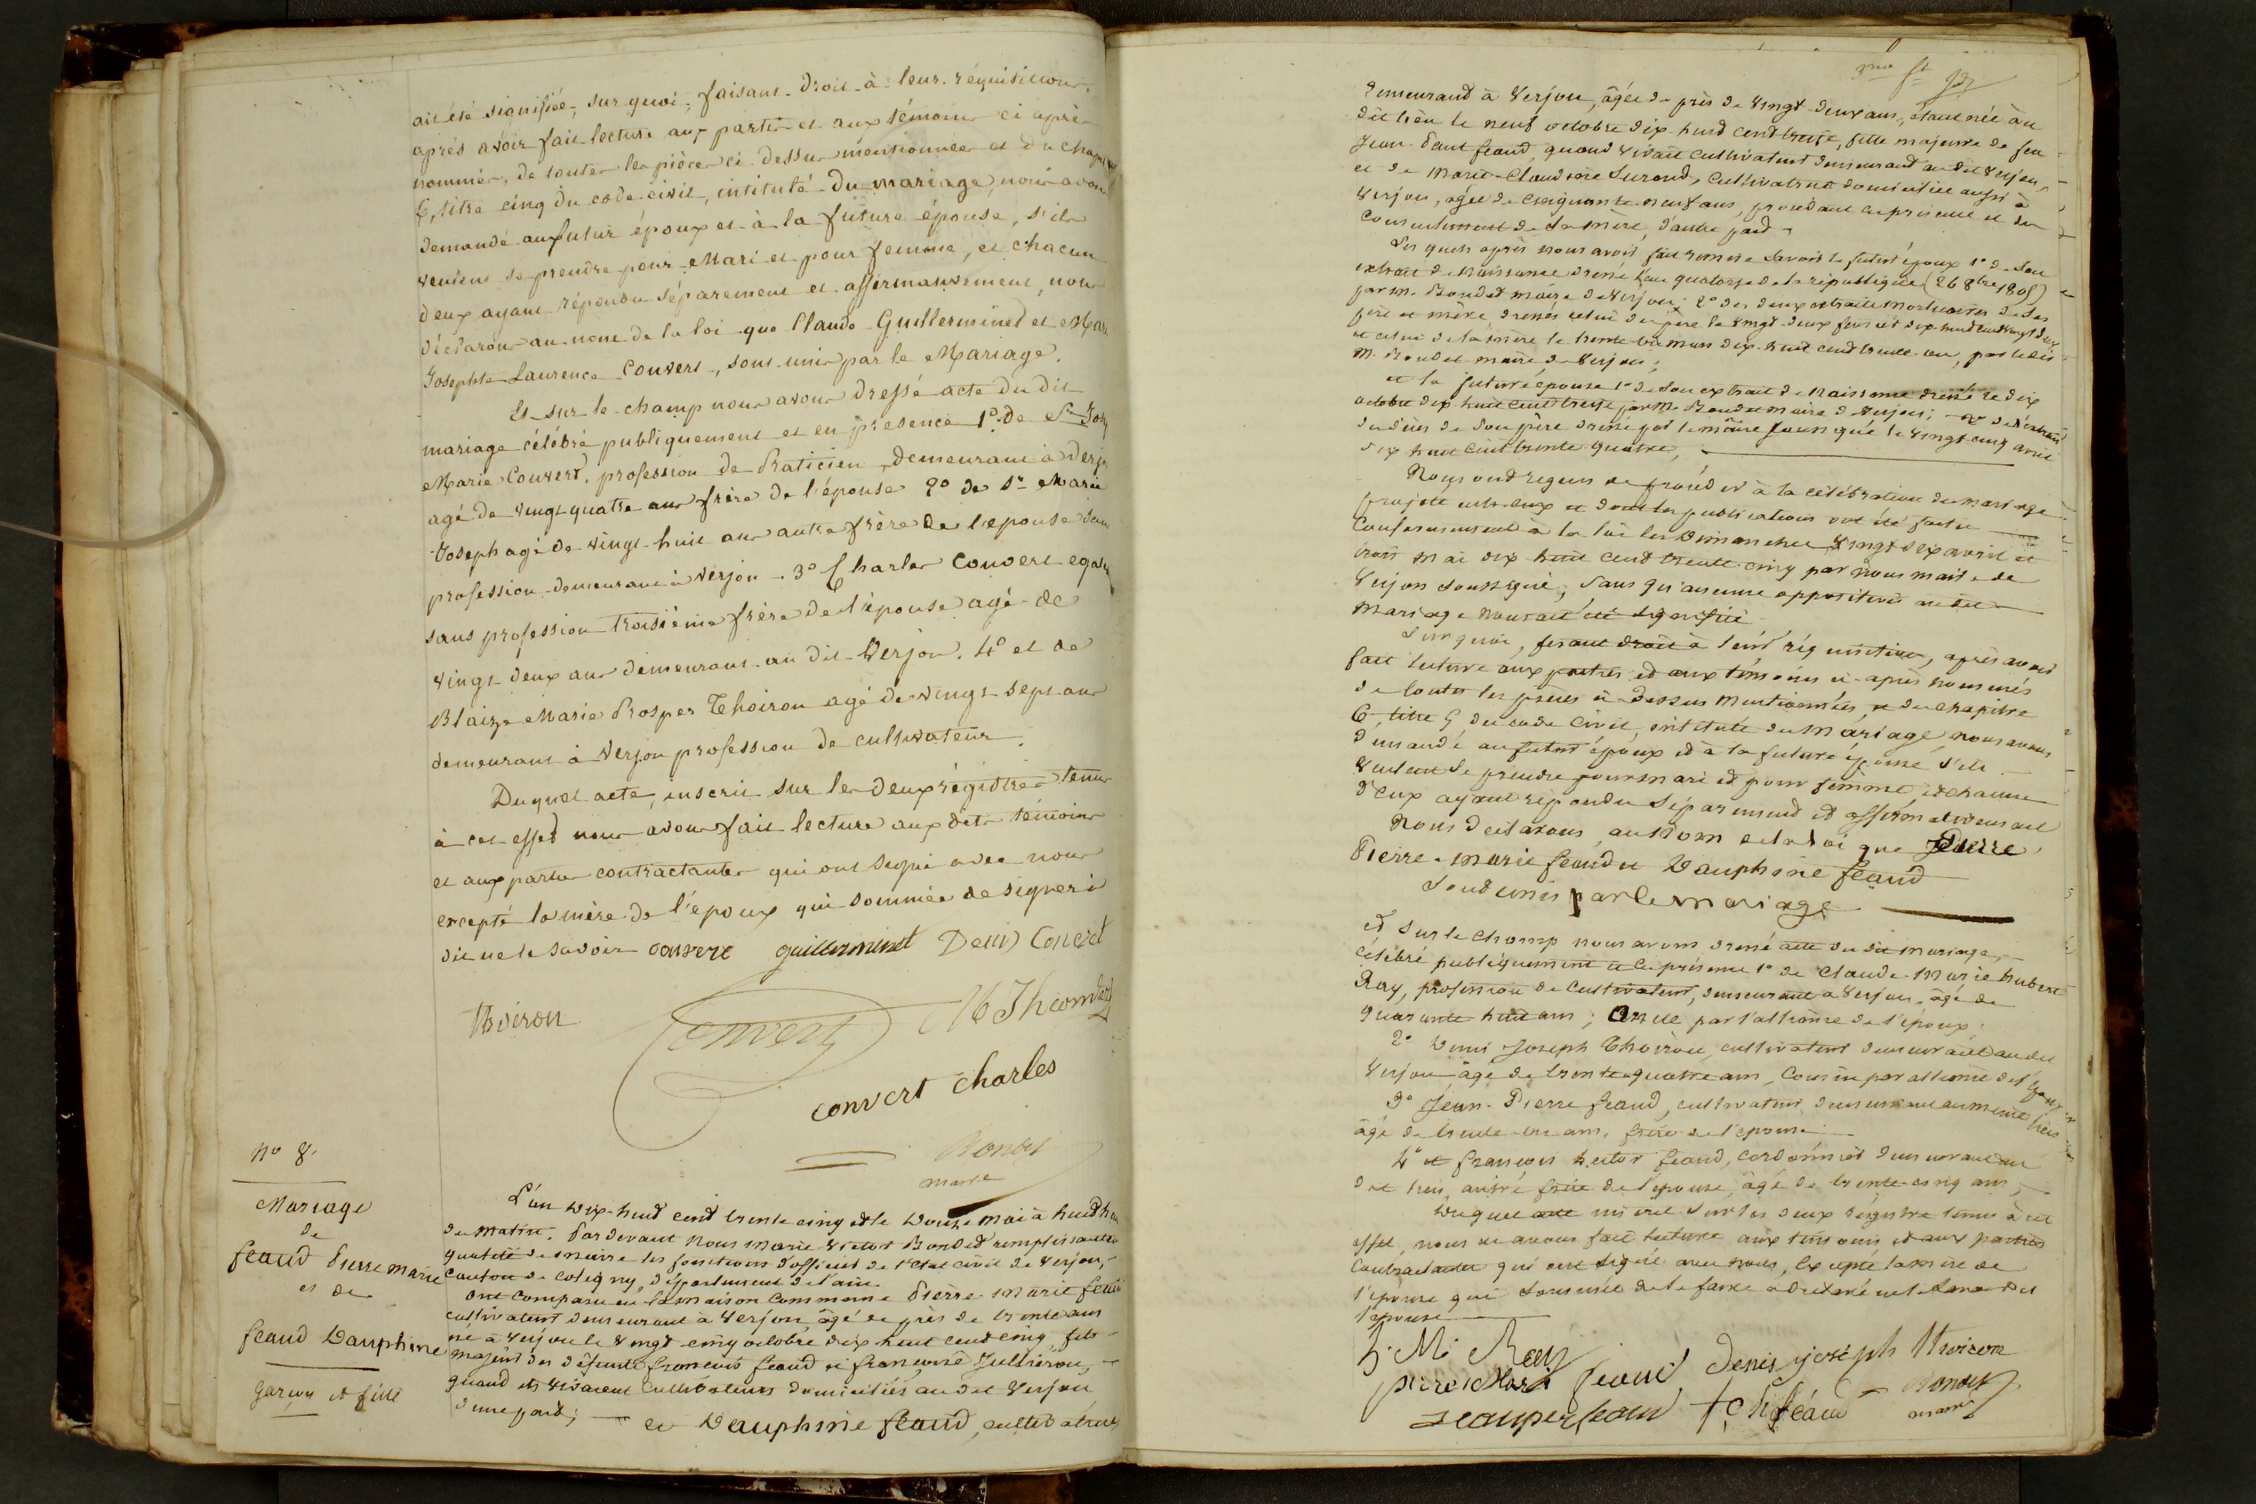 ait été signifiée, sur quoi, faisant droit à leur réquisition.
après avoir fait lecture aux parties et aux témoins ci après
nommés, de toutes les pièces ci dessus mentionnées et du chapitre
6, titre cinq du code civil, intitulé du mariage, nous avons
demandé au futur époux et à la future épouse, s'ils
veulent se prendre pour Mari et pour femme, et chacun
deux ayant répondu séparement et affirmativement, nous
déclarons au nom de la loi que Claude Guillerminet et Mari
Josephte Laurence Convert, sont unis par le Mariage.
Et sur le champ nous avons dressé acte du dit
mariage célébré publiquement et en présence 1º de Sr Josph
Marie Convert, profession de Praticien, demeurant à Verjon
agé de vingt quatre ans frère de l'épouse 2º de Sr Marie
Joseph agé de vingt-huit ans autre frère de l'épouse sans
profession demeurant à Verjon - 3º Charles Convert egalem
sans profession troisième frère de l'épouse agé de
vingt deux ans demeurant au dit Verjon. 4º et de
Blaize Marie Prosper Thoiron agé de vingt sept ans
demeurant à Verjon profession de cultivateur.
Duquel acte, inscrit sur les deux régistres tenus
à cet effet nous avons fait lecture aux dits témoins
et aux parties contractantes qui ont signé avec nous
excepté la mère de l'époux qui sommée de signer à
dit ne le savoir convere guillerminet Denis Convert
Thoiron Convert
convert charles
Bondet
maire
No 8.
Mariage
de
feaud Pierre marie
et de
feaud Dauphine
Garçon et fille
L'an dix-huit cent trente cinq et le douze mai à huit heu
du matin. Par devant Nous marie victor Bondet remplissant en
qualité de maire les fonctions d'officier de l'état civil de Verjon,
Canton de Coligny, département de l'ain.
ont comparu en la maison commune Pierre marie feaud
cultivateur demeurant à Verjon, âgé de près de trente ans
né à Verjon le vingt-cinq octobre dix huit cent cinq fils
majeur des défunts françois feaud et françoise
quand ils vivaient cultivateurs domiciliés au dit Verjon
d'une part; et Dauphine feaud, cultivatrice
demeurant à Verjon, âgée de près de vingt-deux ans, étant née au
dit lieu le neuf octobre dix-huit cent treize, fille majeure de feu
Jean-Paul feaud, quand vivait cultivateur demeurant au dit Verjon,
et de marie-Claudine, cultivatrice domiciliée aussi à
Verjon, âgée de cinquante-neuf ans, procédant en présence et du
consentement de sa mère, d'autre part
Les quels après nous avoir fait remise savoir le futur époux 1º de son
extrait de naissance dressé l'an quatorze de la république (26 8bre 1805)
par m. Bondet maire de Verjon; 2º des deux extraits mortuaires de ses
père et mère dressés celui du père le vingt-deux dix huit cent vingt deux
et celui de la mère le trente mars dix-huit cent trente un, par le dit
M. Bondet maire de Verjon;
et la future épouse 1º de son extrait de naissance dressé le dix
octobre dix huit cent treize par M. Bondet maire de Verjon; 2º de l'extrait
du décès de son père dressé par le maire soussigné le vingt-cinq avril
dix huit cent trente quatre,
Nous ont requis de procéder à la célébration du mariage
projeté entr'eux et dont les publications ont été faites
conformément à la loi les dimanches vingt six avril et
trois mai dix huit cent trente-cinq par nous maire de
Verjon soussigné, sans qu'aucune opposition au dit
mariage nous ait été signifiée
Sur quoi, fesant droit à leur réquisition, après avoir
fait lecture aux parties et aux témoins ci-après nommés
de toutes les pièces ci-dessus mentionnées, et du chapitre
6, titre 5 du code civil, intitulé du mariage nous avons
demandé au futur époux et à la future épouse s'ils
veulent se prendre pour mari et pour femme, et chacun
d'eux ayant répondu séparement et affirmativement
Nous déclarons au nom de la loi que Pierre
Pierre-marie feaud et Dauphine feaud
sont unis par le mariage
et sur le champ nous avons dressé acte du dit mariage,
célébré publiquement en la présence 1º de Claude-Marie hubert
Ray, profession de cultivateur, demeurant à Verjon, âgé de
quarante huit ans; oncle par l'alliance de l'époux.
2º Denis Joseph Thoiron, cultivateur demeurant au dit
Verjon âgé de trente-quatre ans, cousin par alliance de l'époux
3º Jean-Pierre feaud, cultivateur, demeurant au même lieu
âgé de trente-un ans, frère de l'épouse
4º et françois hector feaud, cordonnier demeurant au
dit lieu, autre frère de l'épouse, âgé de trente-cinq ans,
Duquel acte inscrit sur les deux régistre tenus à cet
effet, nous en avons fait lecture aux témoins et aux parties
contractantes qui ont signé avec nous, excepté la mère de
l'épouse qui sommée de le faire à déclaré ne le savoir
l'épouse
h. M. Ray
pierre Marie feaud Denis joseph thoiron
jean pier feaud f. h. feaud Bondet
maire